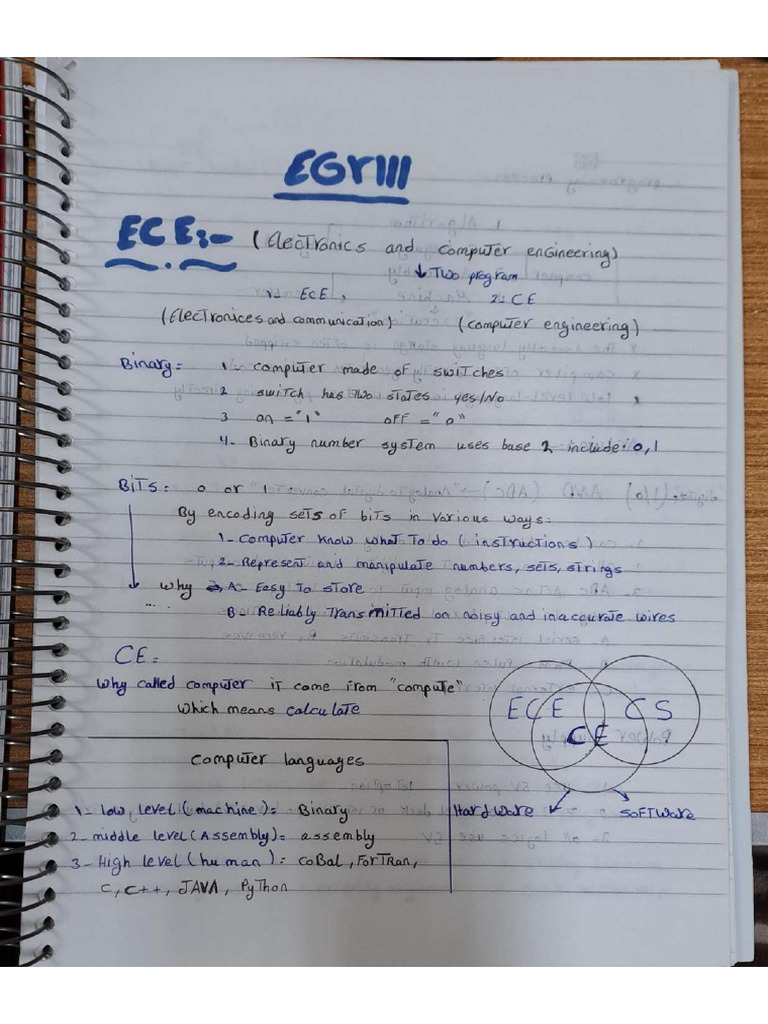 EGY111
ECE:- (Electronics and computer engineering)
↓ Two program
1- ECE, 2- CE
(Electronices and communication) (computer engineering)
Binary: 1- computer made of switches
2 switch has two states yes/No
3 on = "1" off = "0"
4- Binary number system uses base 2 include 0,1
BiTS: 0 or 1
By encoding sets of bits in various ways:
1- computer know what to do (instructions)
2- Represent and manipulate numbers, sets, strings
why A- Easy to store
B- Reliably transmitted on noisy and inaccurate wires
CE:
why called computer it come from "compute"
which means calculate
ECE CS
CE
computer languages
1- low level (machine) = Binary
Hardware software
2- middle level (Assembly) = assembly
3- High level (human) = coBal, ForTran,
C, C++, JAVA, Python